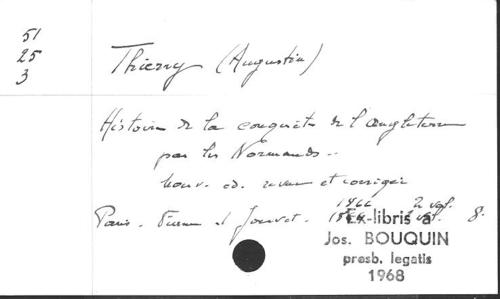 51
25
3
Thierry (Augustin)
Histoire de la conquête de l'Angleterre
par les Normands..
nouv. éd. revue et corrigée
Paris. Furne et Jouvet. 1866 2 vol. 8.
Ex-libris a
Jos. BOUQUIN
presb. legatis
1968